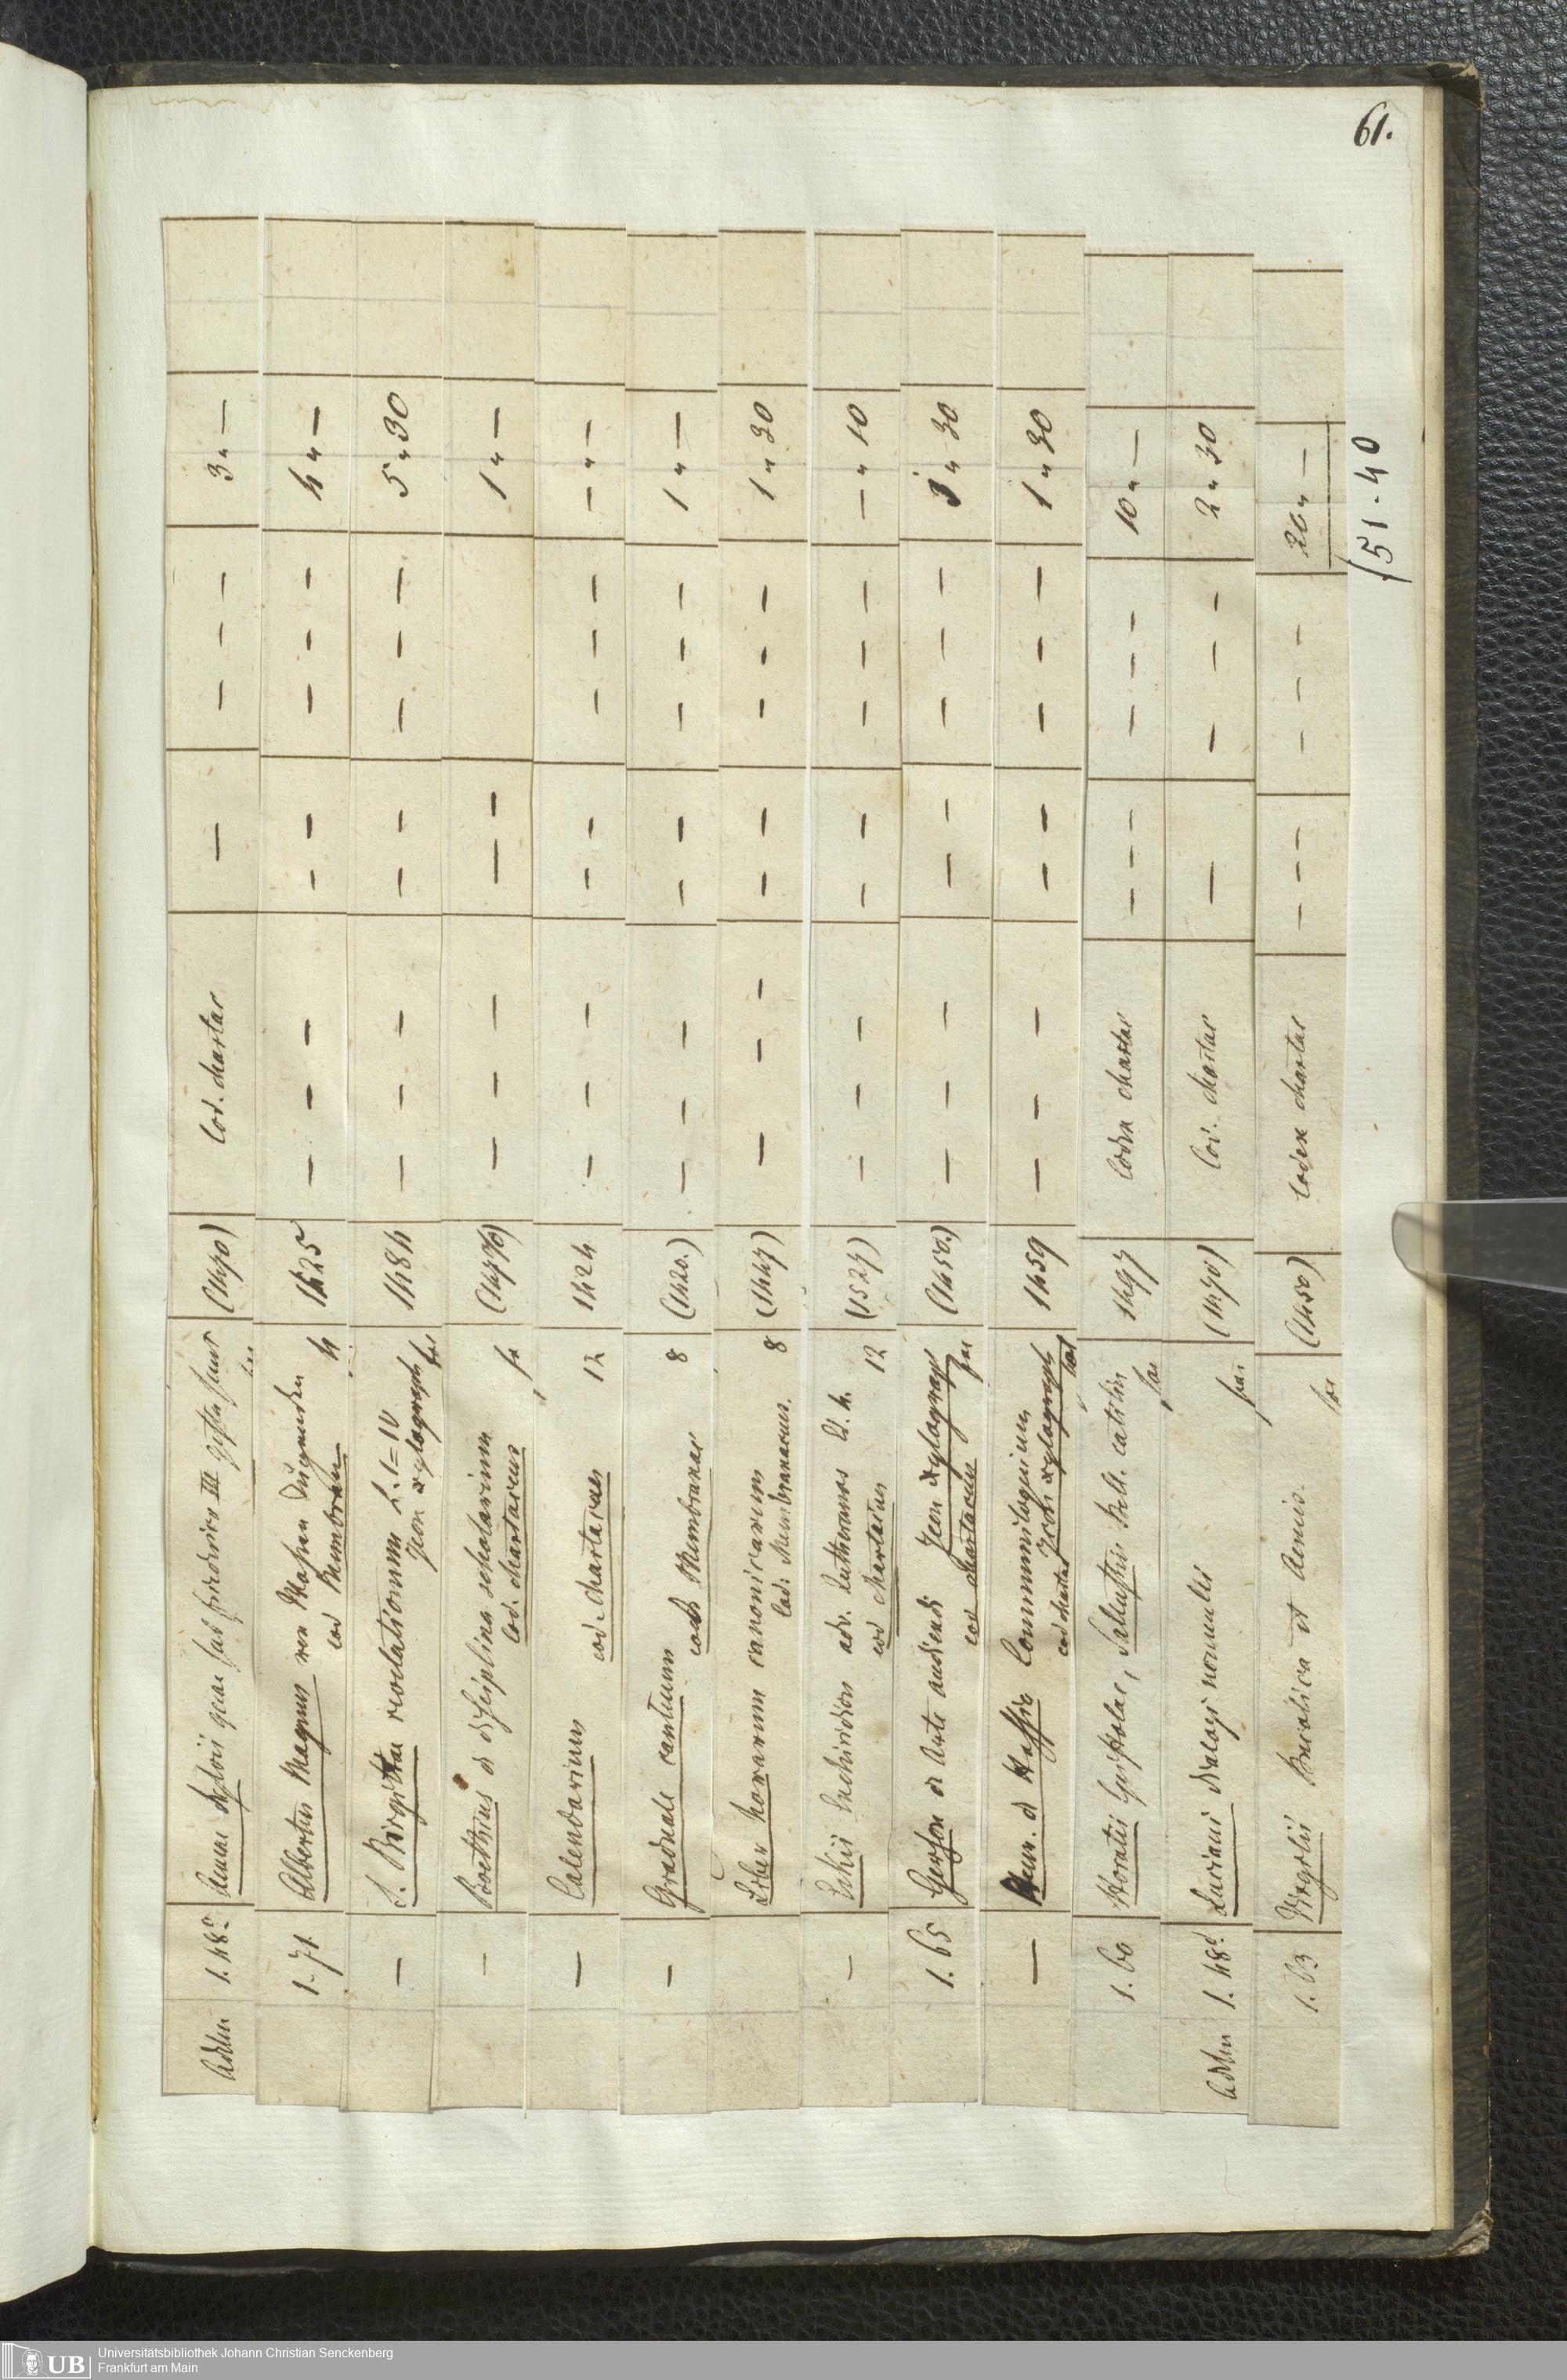 61.
1.48c Aeneae Sylvii quae sub friderico III gesta sunt (1470) Cod. chartac — — — — 3 " —
1-71. Albertus Magnus von 4
cod Membran 1425 — — — — — — — — 4 " —
— S. Birgittae revelationum L. I=IV
xylograph fol 1484 — — — — — — — — 5 " 30
— Boethius d disciplina scholarium
Cod. chartaceus (1470) — — — — — 1 " —
— Calendarium 12
cod. chartaceus 1424 — — — — — — — — — " —
— Graduale cantuum 8
Membranac (1420.) — — — — — — — — 1 " —
Liber horarum canonicarum 8
Cod. Membranaceus. (1447) — — — — — — — — 1 " 30
— Eckii Enchiridion adv. Lutheranos 12
cod chartaceus (1527) — — — — — — — — — " 10
1. 65 Gerson d Arte audiendi xylograph
cod chartaceus (1450.) — — — — — — — — " 30
— Henr. d Hassia Communiloquium
cod chartac xylograph 1459 — — — — — — — — 1 " 30
1. 60 Horatii Epistolae, Sallustii bell. catilin
fol 1497 Codex chartac — — — — — — 10 " —
1. 48d Luciani dialogi nonnulli (1470) Cod. chartac — — — — 2 " 30
1. 63 Virgilii Bucolica et Aeneis. (1450) Codex chartac — — — — — — 20 " —
51.40
UB Universitätsbibliothek Johann Christian Senckenberg
Frankfurt am Main